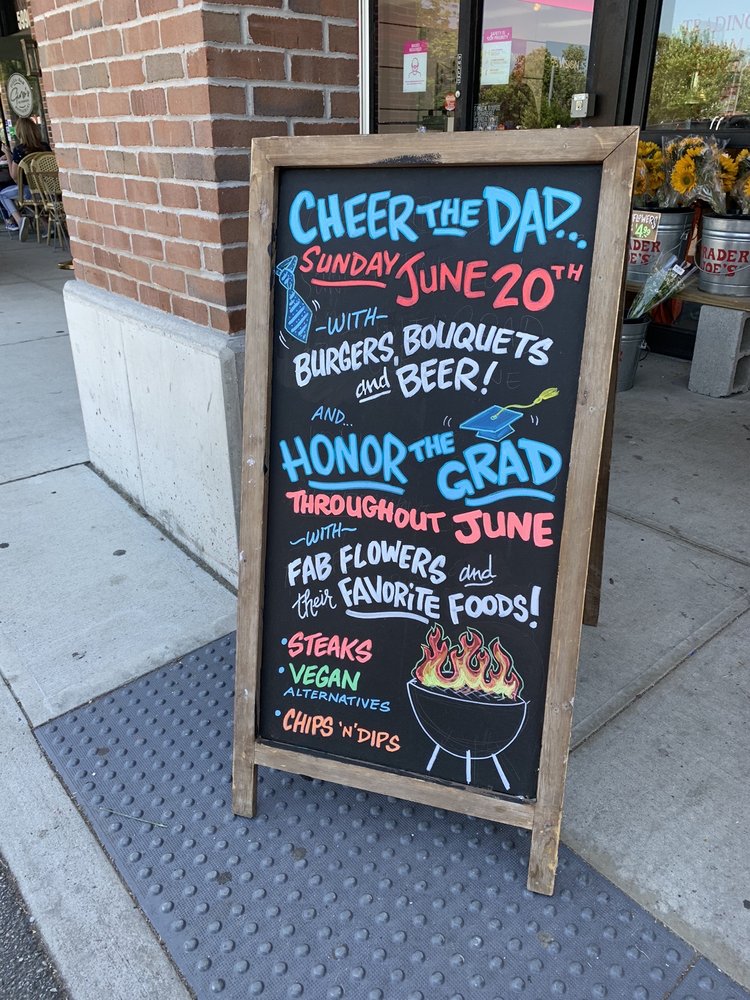 CHEER THE DAD...
SUNDAY JUNE 20TH
-WITH-
BURGERS, BOUQUETS
and BEER!
AND...
HONOR THE GRAD
THROUGHOUT JUNE
~WITH~
FAB FLOWERS and
their FAVORITE FOODS!
• STEAKS
• VEGAN
ALTERNATIVES
• CHIPS 'N' DIPS
FLOWERS
RADER
OE'S
RADER
OE'S
TRADING
509